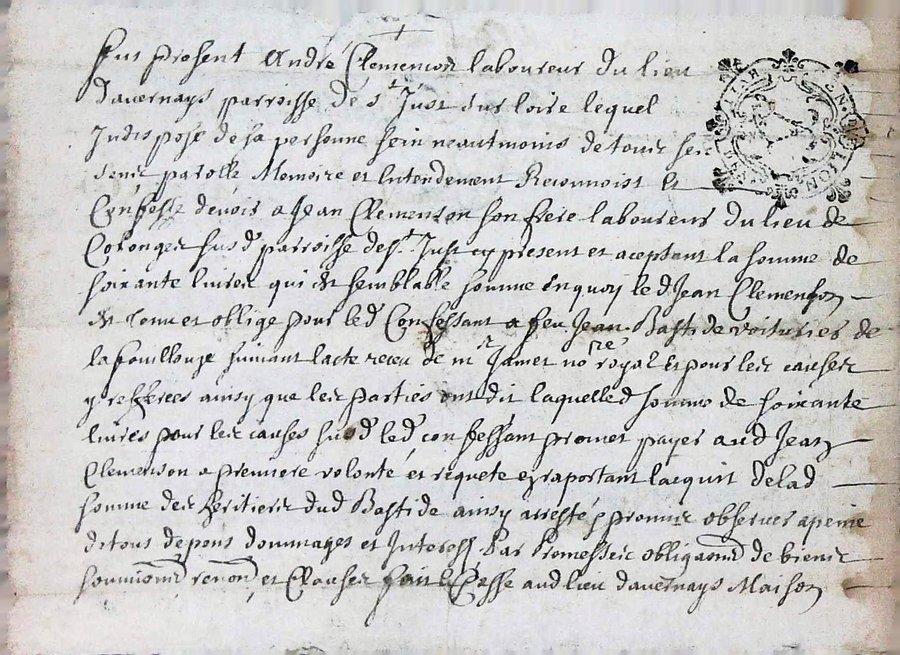 fut present André Clemenson laboureur du lieu
davernays parroisse de st Just sur loire lequel
Indispose de sa personne sein neautmoins de tous ses
sens parolle Memoire et Intendement Reconnoist et
Confesse devois a Jean Clemenson son frere laboureur du lieu de
susd parroisse de st Just cy present et aceptant la somme de
soixante livres qui est semblable somme en quoy led Jean Clemenson
est tenu et oblige pour led Confessant a feu Jean Bastide voiturier de
la fouillouze suivant lacte receu de mr Jamet nore royal et pour les causes
y refferees ainsy que les parties ont dit laquelled somme de soixante
livres pour les causes susd led confessant promet payer aud Jean
Clemenson a premiere volonté et requete en raportant lacquit delad
somme des heritiers dud Bastide ainsy arresté promis observer a peine
de tous depens dommages et Interests Par Promesses obligaons de biens
soumions renon et Clauses fait et Passe aud lieu davernays Maison
GEN DE LION